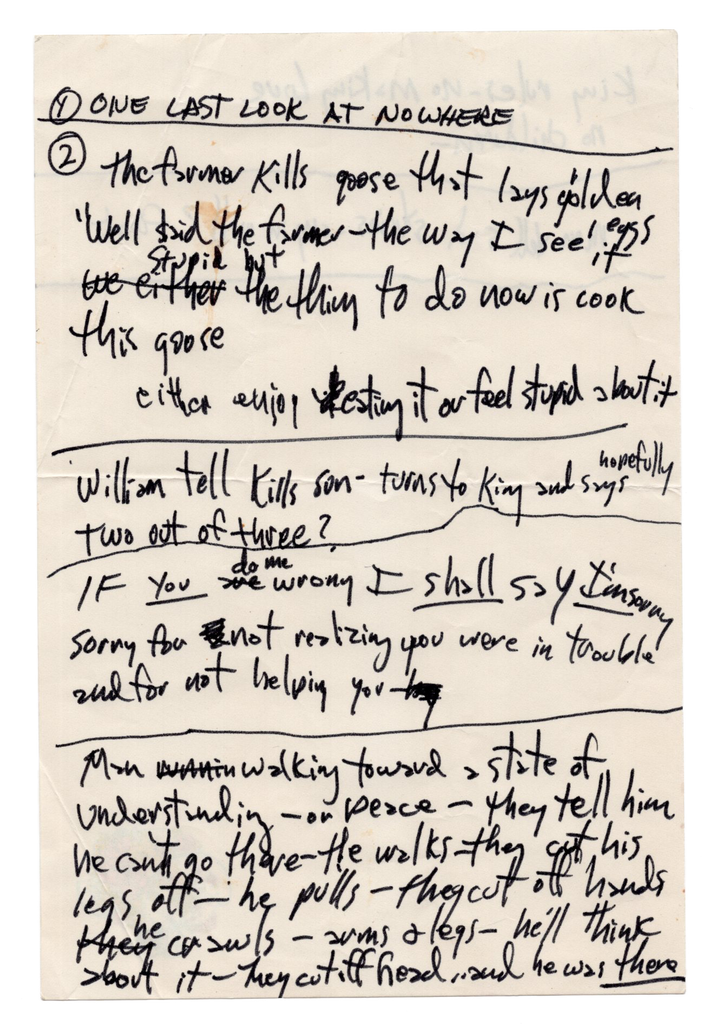 ① ONE LAST LOOK AT NOWHERE
② the farmer kills goose that lays golden eggs
"Well said the farmer - the way I see it
stupid but
we either the thing to do now is cook
this goose
either enjoy eating it or feel stupid about it
William tell kills son - turns to King and says hopefully
two out of three?
do me
IF you are wrong I shall say I'm sorry
sorry for not realizing you were in trouble
and for not helping you
Man walking toward a state of
understanding - or peace - they tell him
he can't go there - He walks - they cut his
legs off - he pulls - they cut off hands
he
they crawls - arms & legs - he'll think
about it - they cut off head.. and he was there